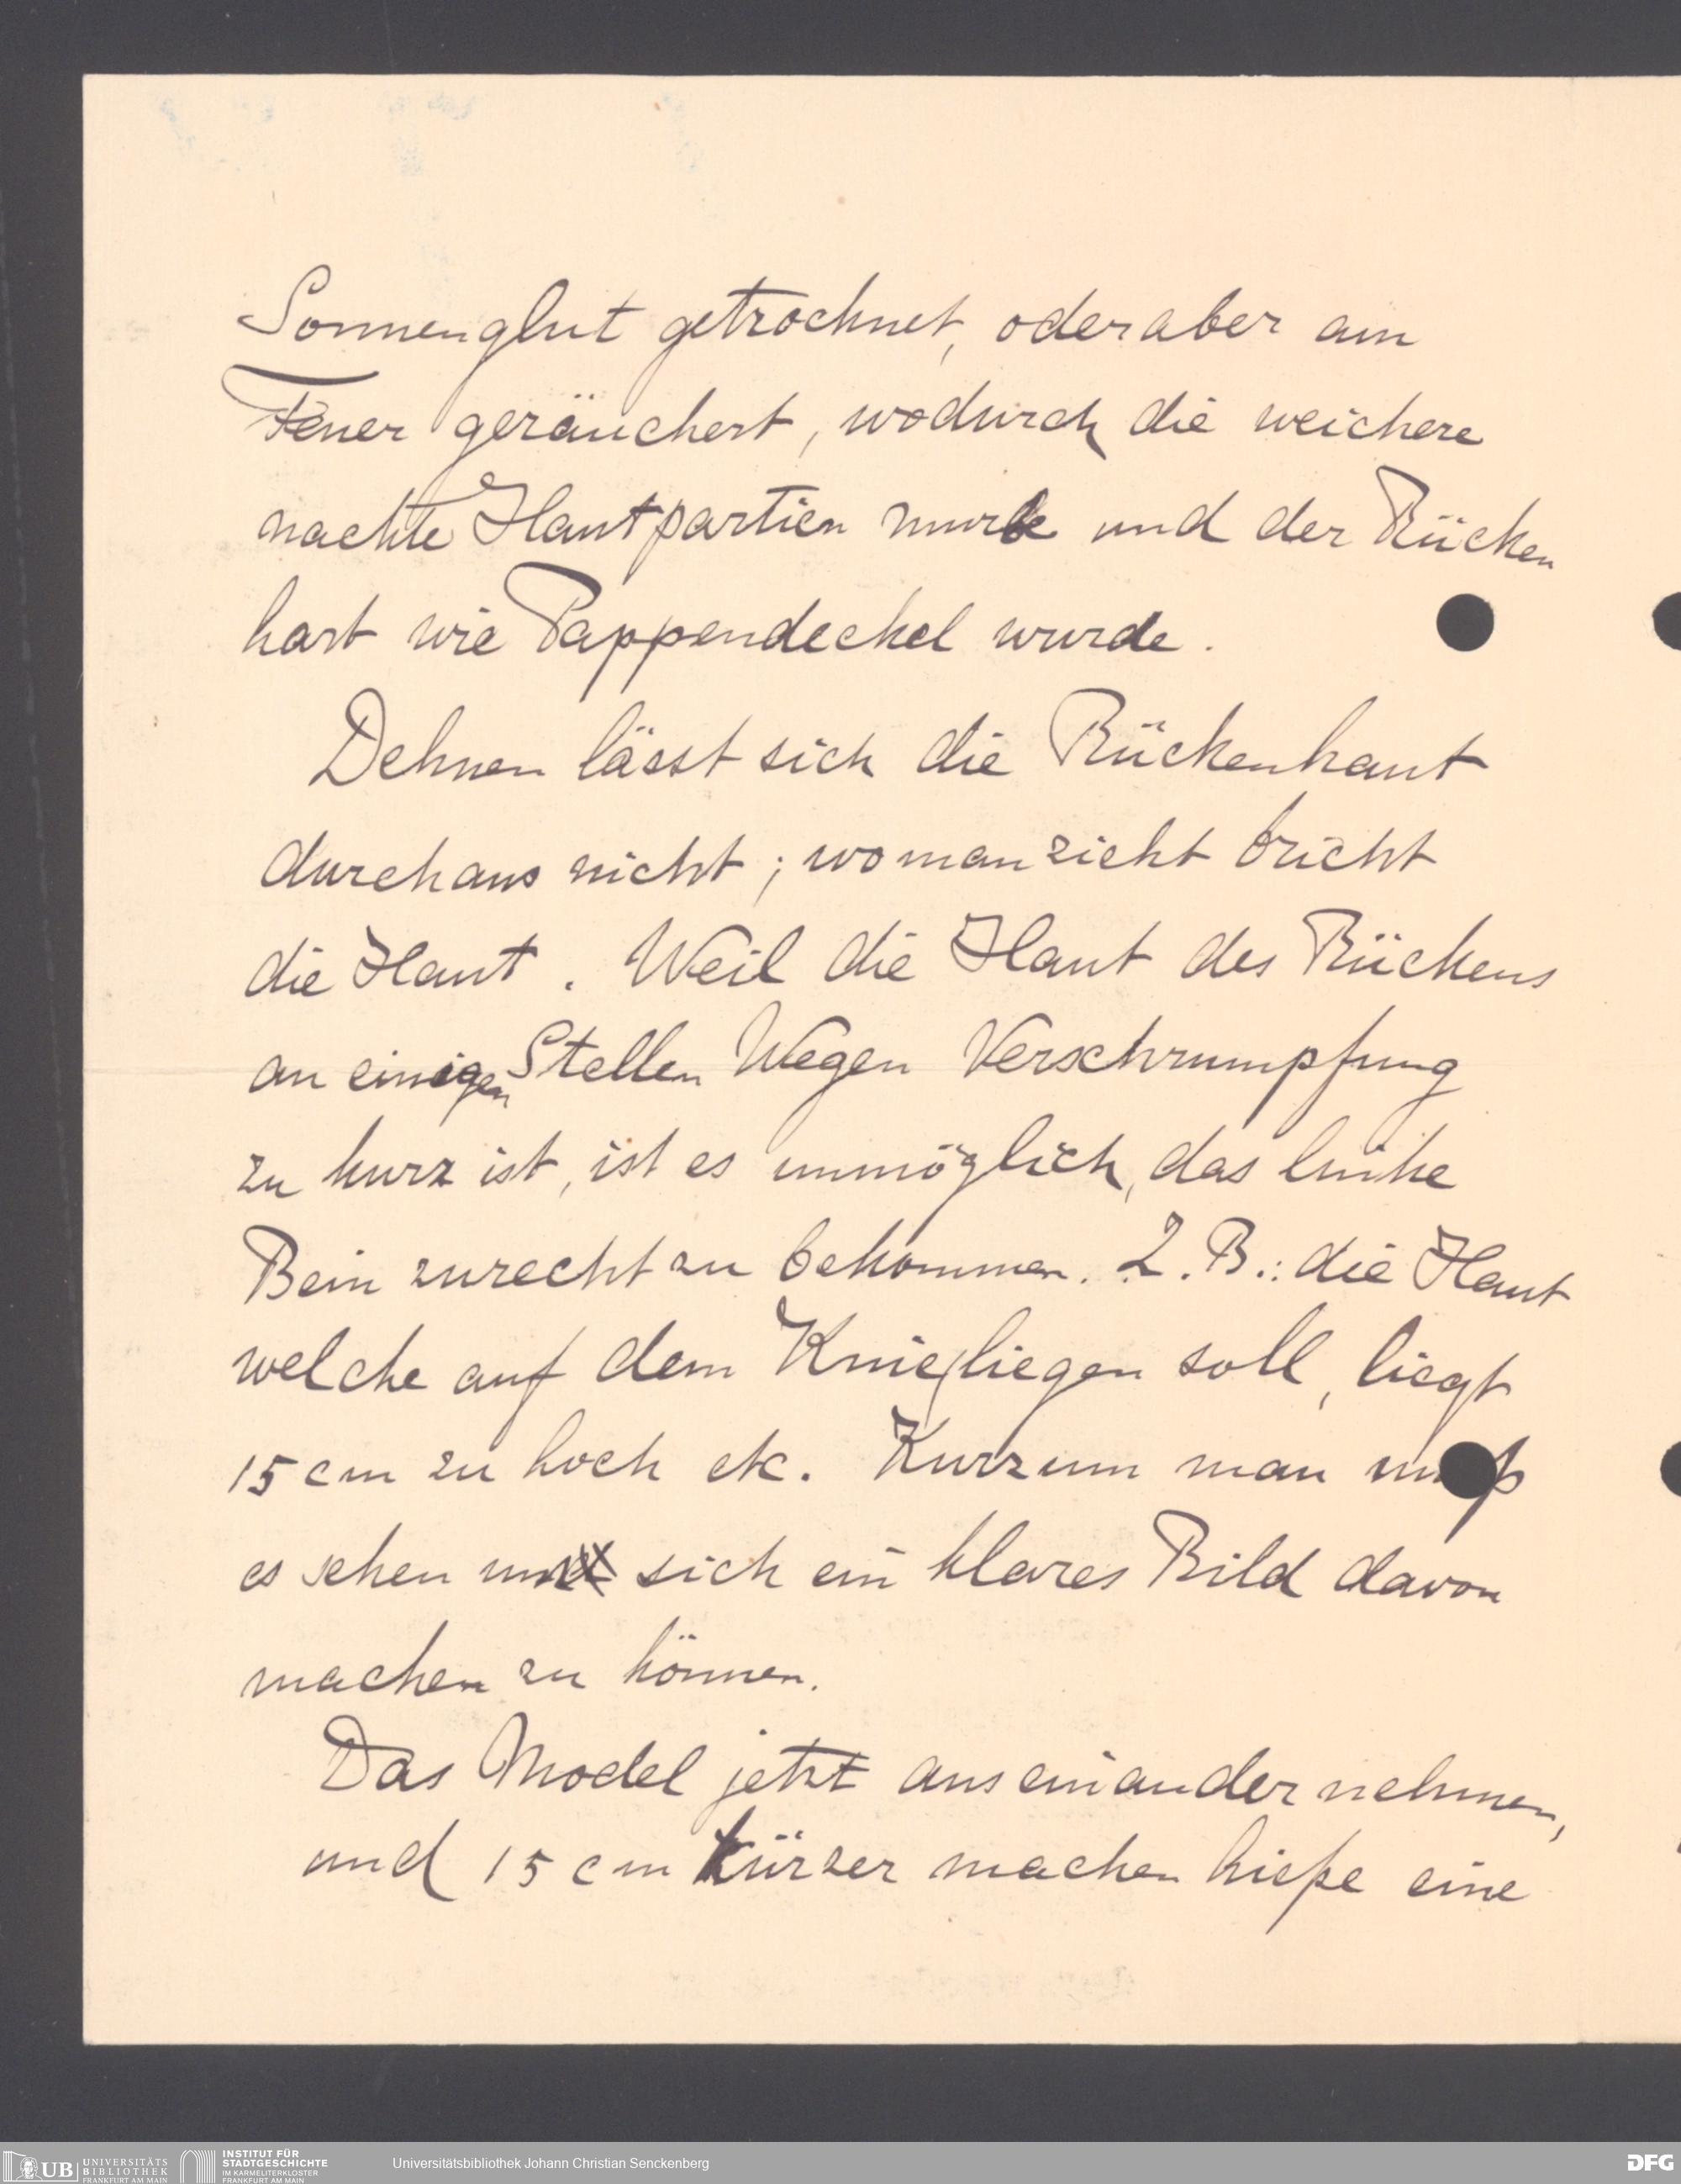 Sonnenglut getrocknet, oder aber am
Feuer geräuchert, wodurch die weichere
nackte Hautpartien murbe und der Rücken
hart wie Pappendeckel wurde.
Dehnen lässt sich die Rückenhaut
durchaus nicht; wo man zieht bricht
die Haut. Weil die Haut des Rückens
an einigen Stellen Wegen Verschrumpfung
zu kurz ist, ist es unmöglich, das linke
Bein zurecht zu bekommen. Z. B.: die Haut
welche auf dem Knie liegen soll, liegt
15 cm zu hoch etc. Kurzum man muß
es sehen um sich ein klares Bild davon
machen zu können.
Das Model jetzt auseinander nehmen,
und 15 cm kürzer machen hieße eine
UB UNIVERSITÄTS BIBLIOTHEK FRANKFURT AM MAIN
INSTITUT FÜR STADTGESCHICHTE IM KARMELITERKLOSTER FRANKFURT AM MAIN
Universitätsbibliothek Johann Christian Senckenberg
DFG